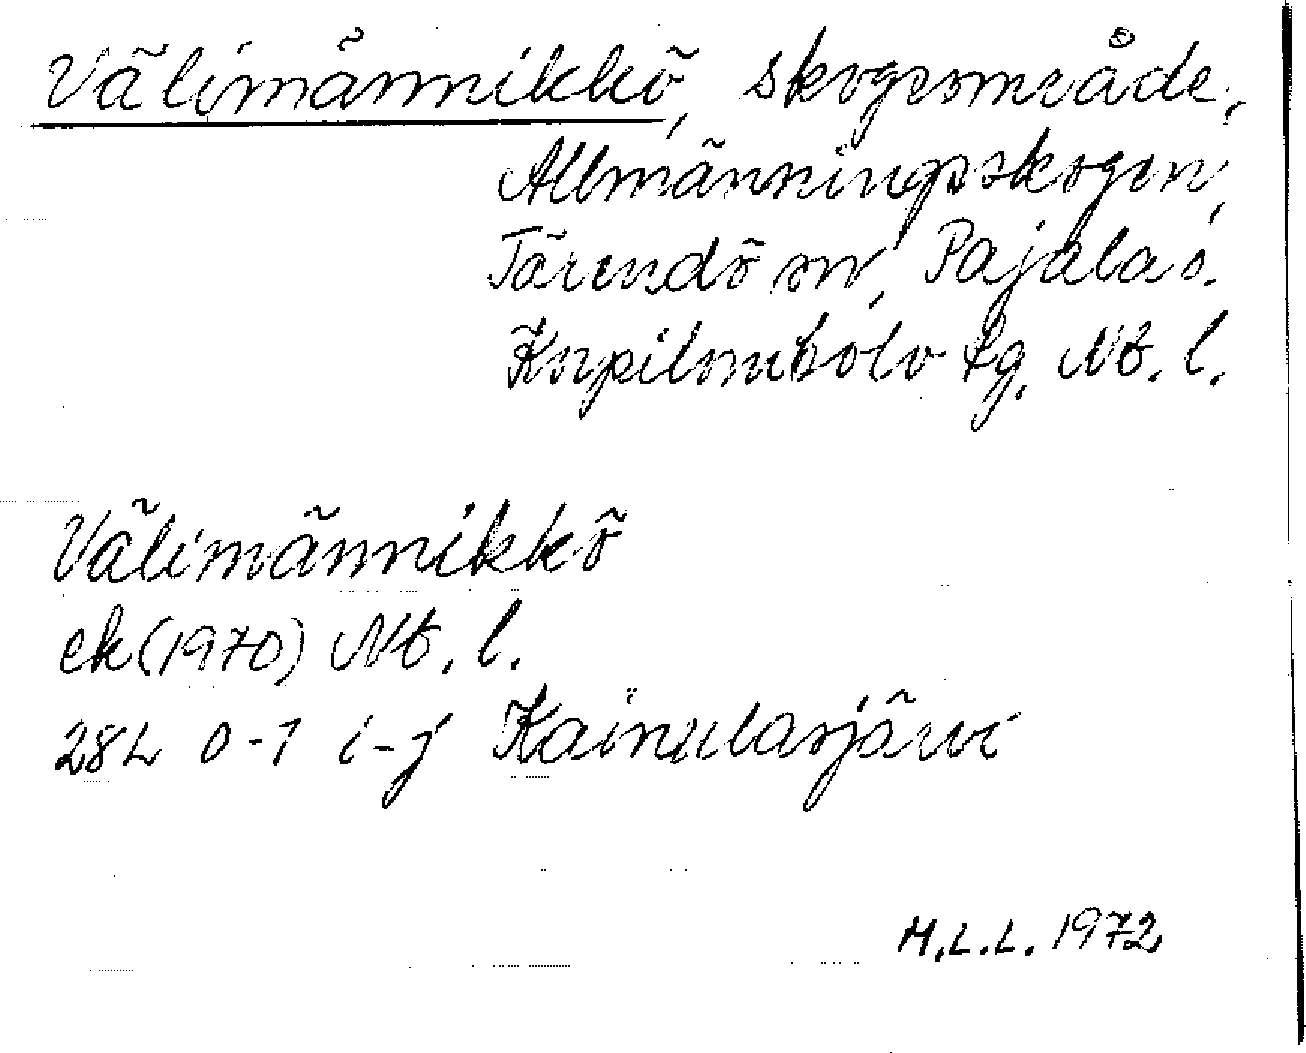 Välimännikkö, skogsområde,
Allmänningsskogen,
Tärendö sn, Pajala s.
Korpilombolo tg, Nb. l.
Välimännikkö
ek (1970) Nb. l.
28L 0-1 i-j Kainulasjärvi
M.L.L. 1972